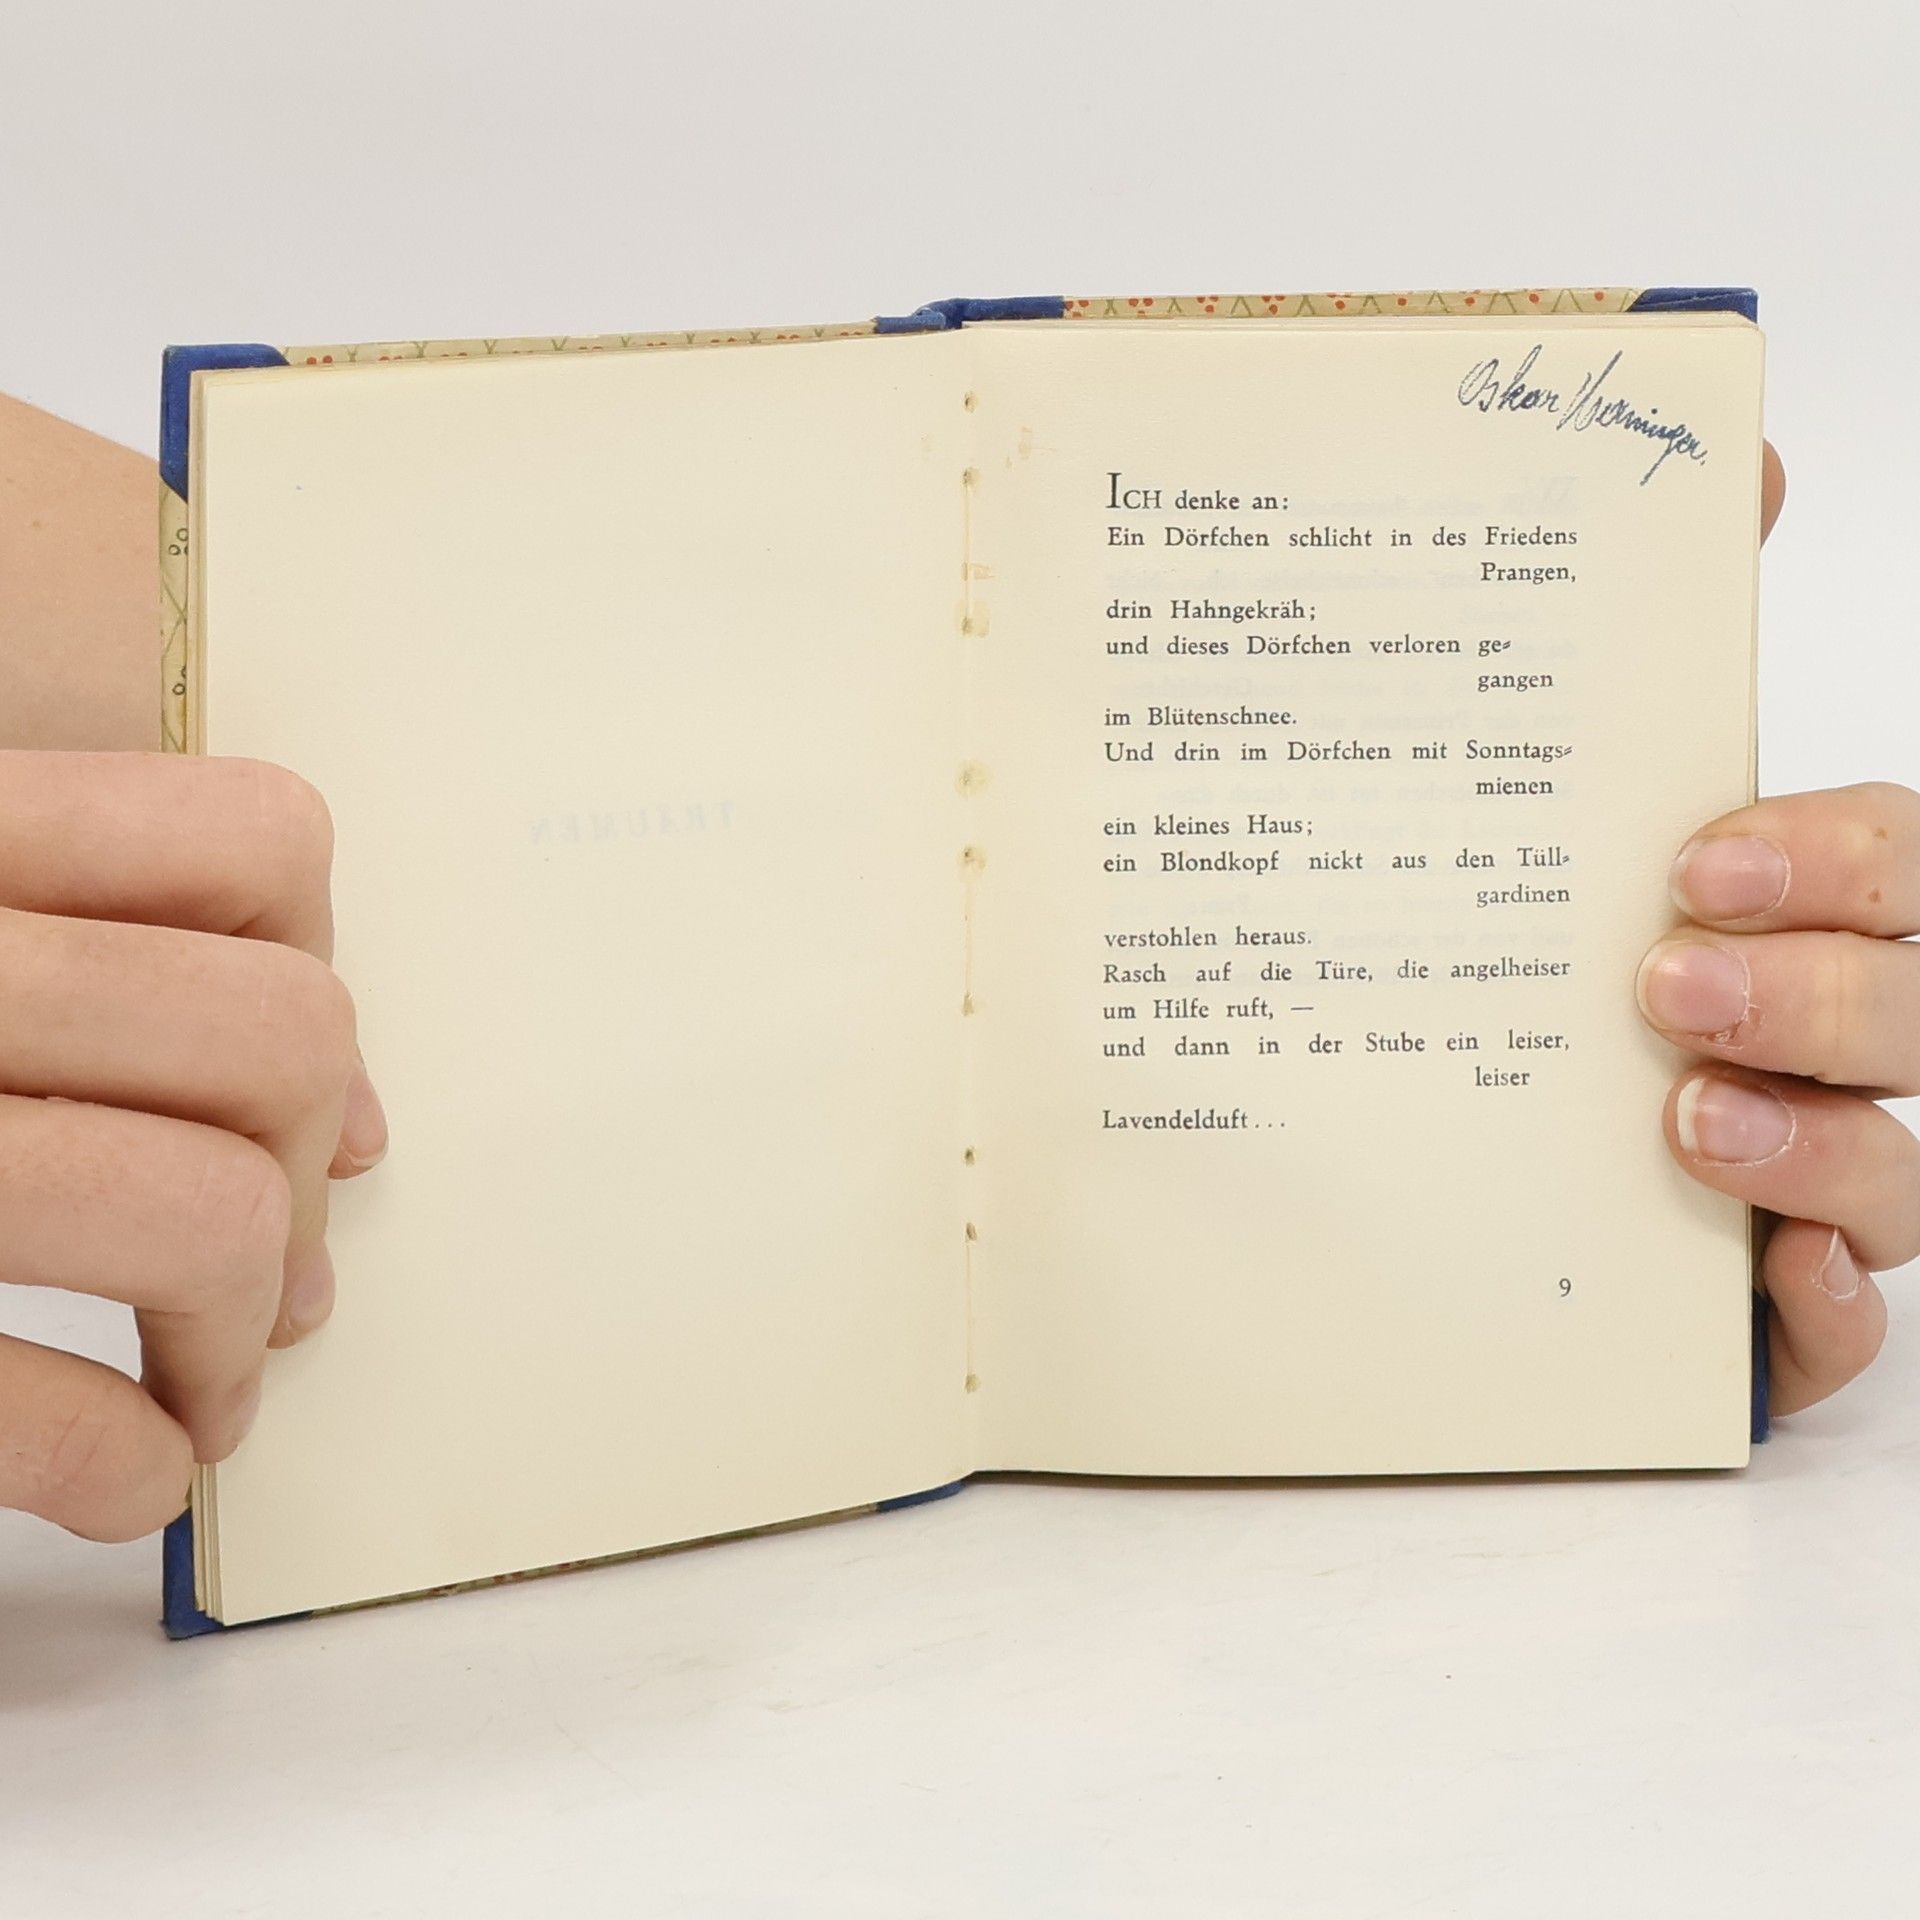 Oskar
ICH denke an:
Ein Dörfchen schlicht in des Friedens
Prangen,
drin Hahngekräh;
und dieses Dörfchen verloren ge-
gangen
im Blütenschnee.
Und drin im Dörfchen mit Sonntags-
mienen
ein kleines Haus;
ein Blondkopf nickt aus den Tüll-
gardinen
verstohlen heraus.
Rasch auf die Türe, die angelheiser
um Hilfe ruft, —
und dann in der Stube ein leiser,
leiser
Lavendelduft...
9